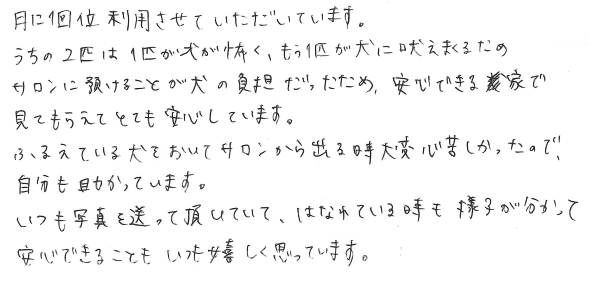 月に1回位利用させていただいています。
うちの2匹は1匹が犬が怖く、もう1匹が犬に吠えまくるため
サロンに預けることが犬の負担だったため、安心できる家で
見てもらえてとても安心しています。
ふるえている犬をおいてサロンから出る時大変心苦しかったので、
自分も助かっています。
いつも写真を送って頂いていて、はなれている時も様子が分かって
安心できることもいつも嬉しく思っています。